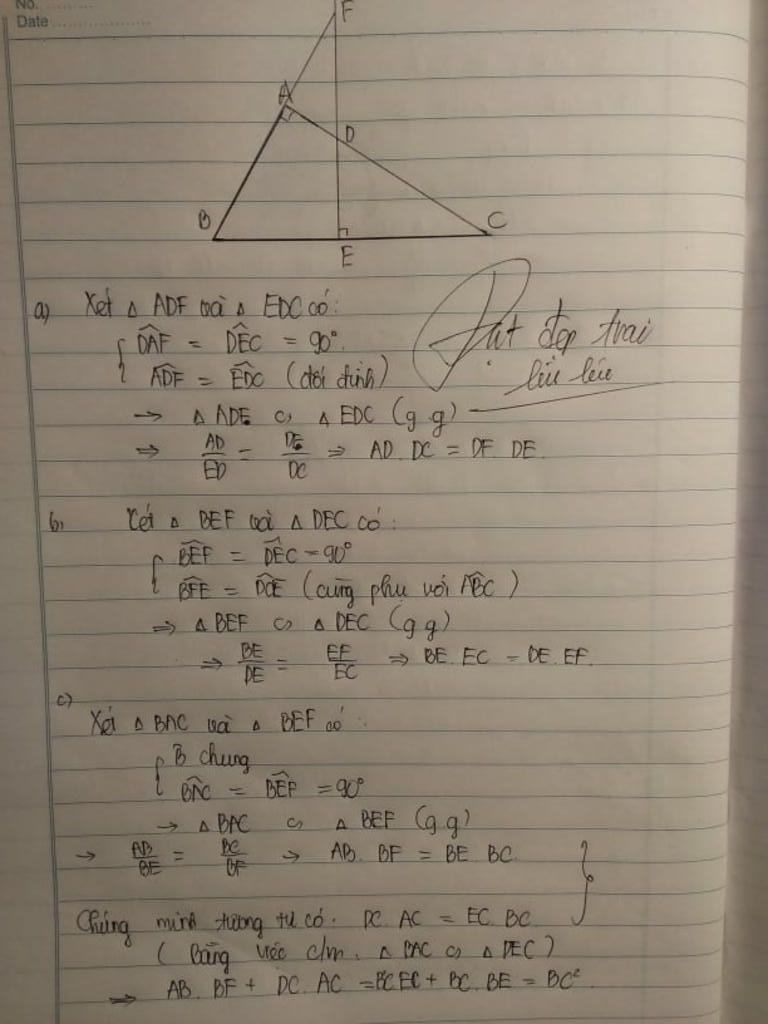 No. ..........
Date ....................
F
A
D
B
C
E
a) Xét △ ADF và △ EDC có:
D̂AF = D̂EC = 90°.
ÂDF = ÊDC (đối đỉnh)
→ △ ADF ∽ △ EDC (g.g)
⇒ AD/ED = DF/DC ⇒ AD.DC = DF.DE.
Đạt đẹp trai
lêu lêu
b, Xét △ BEF và △ DEC có:
B̂EF = D̂EC = 90°
B̂FE = D̂CE (cùng phụ với ÂBC)
⇒ △ BEF ∽ △ DEC (g.g)
⇒ BE/DE = EF/EC ⇒ BE.EC = DE.EF.
c)
Xét △ BAC và △ BEF có:
B̂ chung
B̂AC = B̂EF = 90°
→ △ BAC ∽ △ BEF (g.g)
→ AB/BE = BC/BF → AB.BF = BE.BC.
Chứng minh tương tự có. DC.AC = EC.BC
(Bằng việc c/m. △ BAC ∽ △ DEC)
⇒ AB.BF + DC.AC = BC.EC + BC.BE = BC².